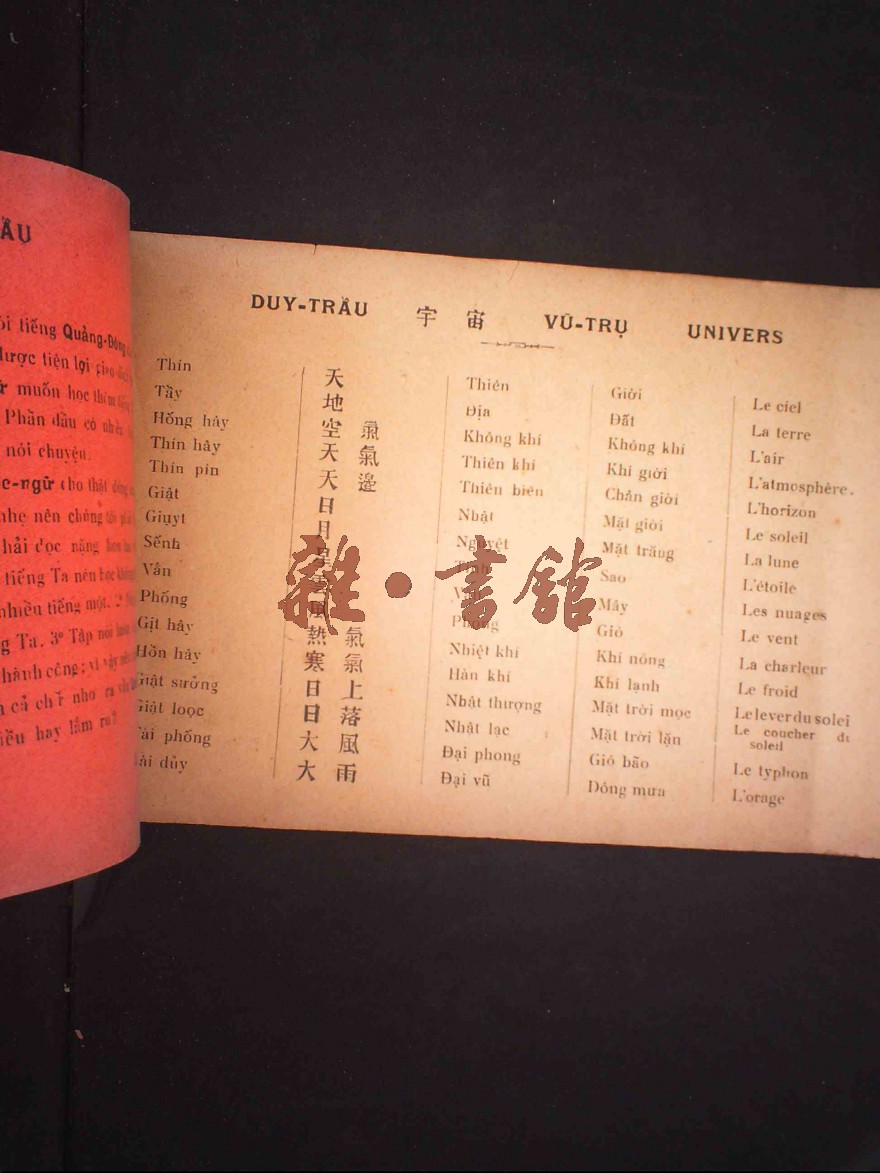 ẦU
ói tiếng Quảng-Đông
được tiện lợi giao
muốn học thêm
Phần đầu có nhều
nói chuyện.
c-ngữ cho thật đúng
nhẹ nên chúng
hải đọc nặng hơn
tiếng Ta nên học
nhiều tiếng một. 2°
ng Ta. 3° Tập nói
hành công; vì vậy
cả chỉ nho ra
iều hay lắm ru?
DUY-TRẦU 宇宙 VŨ-TRỤ UNIVERS
Thín 天 Thiên Giời Le ciel
Tầy 地 Địa Đất La terre
Hống háy 空氣 Không khí Không khí L'air
Thín hây 天氣 Thiên khí Khí giời L'atmosphère.
Thín pín 天邊 Thiên biên Chân giời L'horizon
Giặt 日 Nhật Mặt giời Le soleil
Giụyt 月 Nguyệt Mặt trăng La lune
Sếnh 星 Tinh Sao L'étoile
Vần 雲 Mây Les nuages
Phống 風 Phong Gió Le vent
Gịt hây 熱氣 Nhiệt khí Khí nóng La charleur
Hòn hây 寒氣 Hàn khí Khí lạnh Le froid
Giặt sưởng 日上 Nhật thượng Mặt trời mọc Le lever du solei
Giặt loọc 日落 Nhật lạc Mặt trời lặn Le coucher du soleil
Tái phống 大風 Đại phong Gió bão Le typhon
Tái dủy 大雨 Đại vũ Dông mưa L'orage
雜·書館